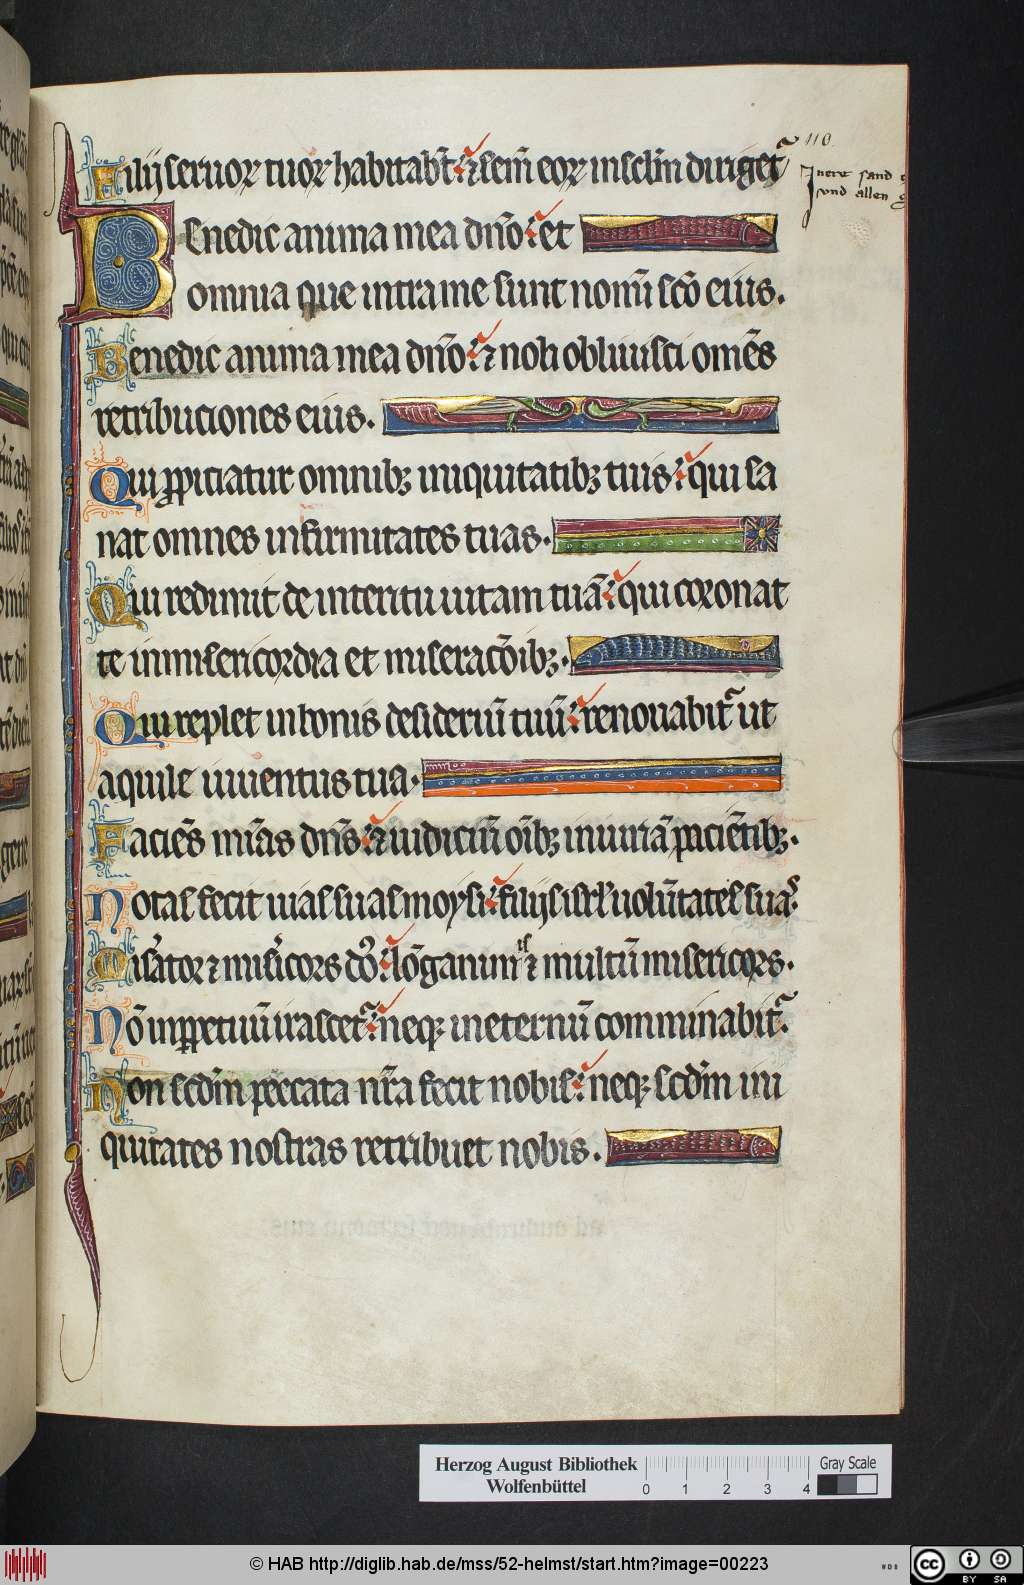 Filij seruoꝝ tuoꝝ habitab̄t ⁊ sem̄ eoꝝ in sclm̄ dirigetᷣ
110.
Benedic anima mea dn̄o et
omnia que intra me sunt nomī sc̄o eius.
Benedic anima mea dn̄o ⁊ noli obliuisci om̄es
retribuciones eius.
Qui ꝓpiciatur omnibꝫ iniquitatibꝫ tuis qui sa
nat omnes infirmitates tuas.
Qui redimit de interitu uitam tuā qui coronat
te in misericordia et miserac̄oibꝫ.
Qui replet in bonis desideriū tuū renouabitᷣ ut
aquile iuuentus tua.
Faciēs mīas dn̄s ⁊ iudiciū oībꝫ iniuriā paciētibꝫ.
Notas fecit uias suas moysi filijs isrl' uolūtates suas
Misᷣator ⁊ misᷣicors dō⁹ lōganimis ⁊ multū misericors.
Nō in ꝑpetuū irascetᷣ neqꝫ in eternū comminabitᷣ.
Non scd̄m peccata nr̄a fecit nobis neqꝫ scd̄m ini
quitates nostras retribuet nobis.
Herzog August Bibliothek
Wolfenbüttel
0 1 2 3 4
Gray Scale
© HAB http://diglib.hab.de/mss/52-helmst/start.htm?image=00223
WDB
cc BY SA